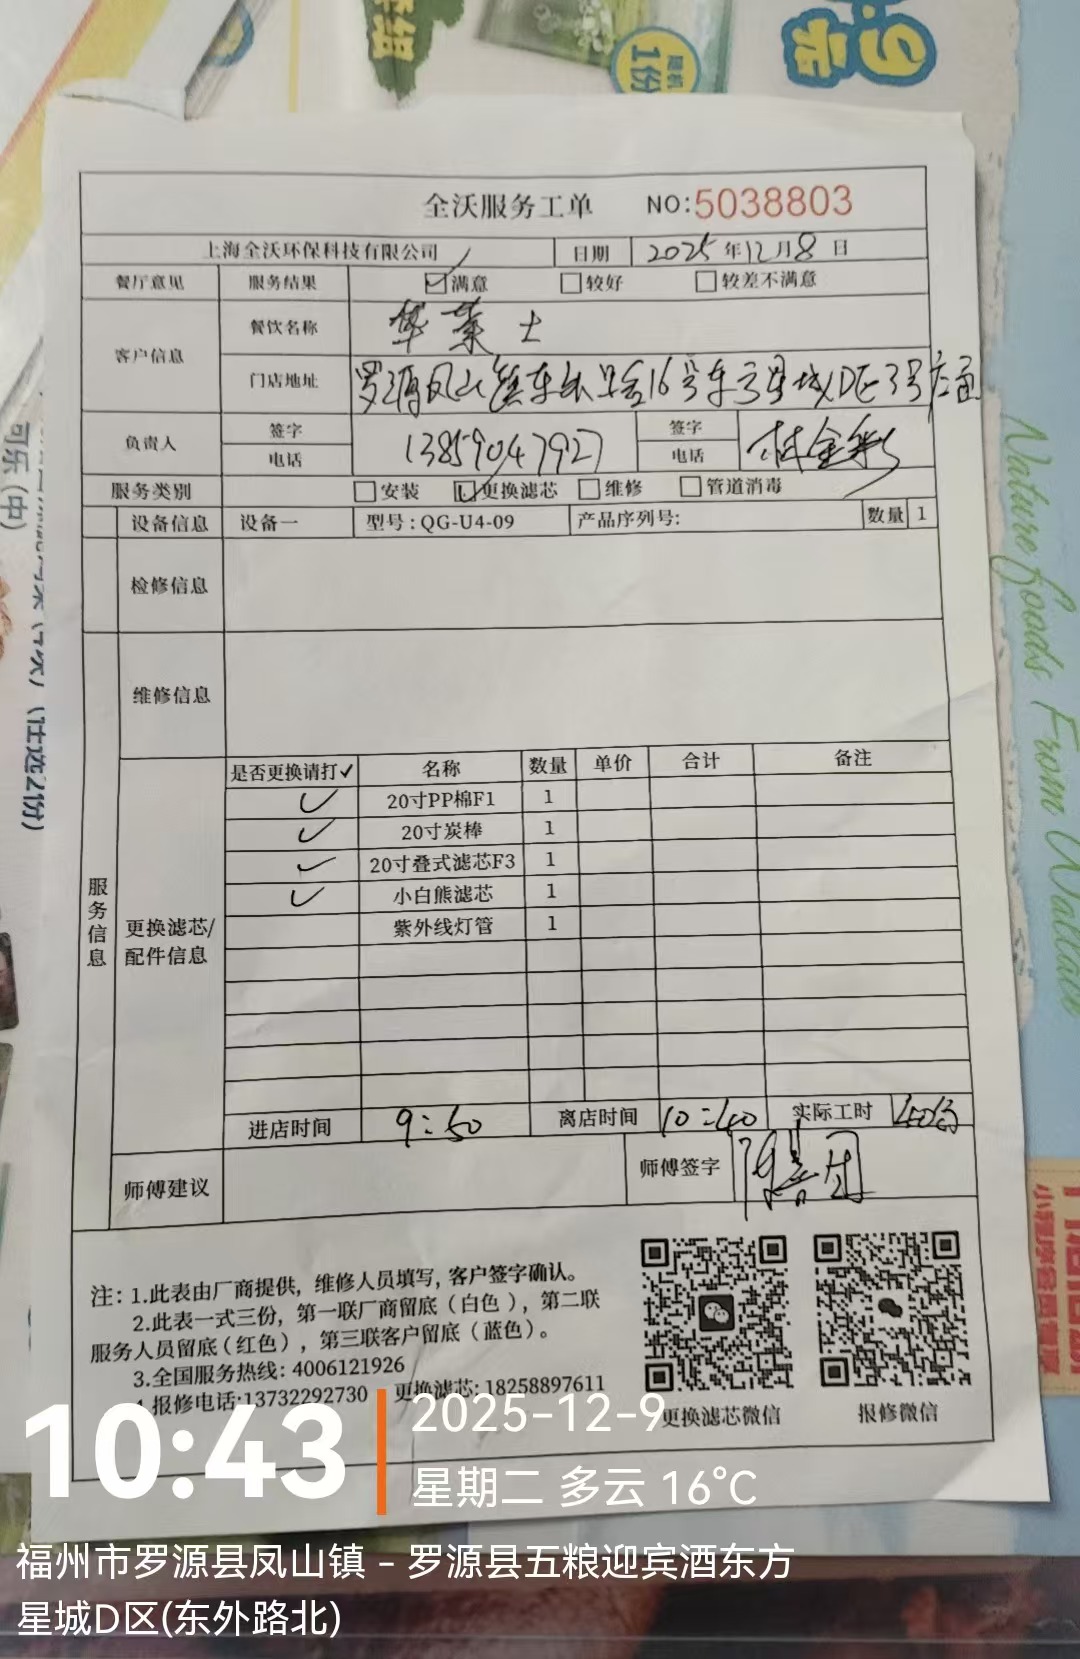 1份
9元
全沃服务工单 NO:5038803
上海全沃环保科技有限公司 日期 2025年12月8日
餐厅意见 服务结果 ☑满意 □较好 □较差不满意
客户信息 餐饮名称 华莱士
门店地址 罗源凤山镇东外路16号东方星城D区3号店面
负责人 签字 电话 13859047927 签字 电话 林金彩
服务类别 □安装 ☑更换滤芯 □维修 □管道消毒
设备信息 设备一 型号:QG-U4-09 产品序列号: 数量 1
检修信息
维修信息
服务信息
更换滤芯/配件信息
是否更换请打✓ 名称 数量 单价 合计 备注
✓ 20寸PP棉F1 1
✓ 20寸炭棒 1
✓ 20寸叠式滤芯F3 1
✓ 小白熊滤芯 1
紫外线灯管 1
进店时间 9:50 离店时间 10:40 实际工时
师傅建议 师傅签字
注:1.此表由厂商提供,维修人员填写,客户签字确认。
2.此表一式三份,第一联厂商留底(白色),第二联
服务人员留底(红色),第三联客户留底(蓝色)。
3.全国服务热线:4006121926
4.报修电话:13732292730 更换滤芯:18258897611
更换滤芯微信 报修微信
可乐(中)
Nature foods From Wallace
10:43
2025-12-9
星期二 多云 16°C
福州市罗源县凤山镇 - 罗源县五粮迎宾酒东方
星城D区(东外路北)